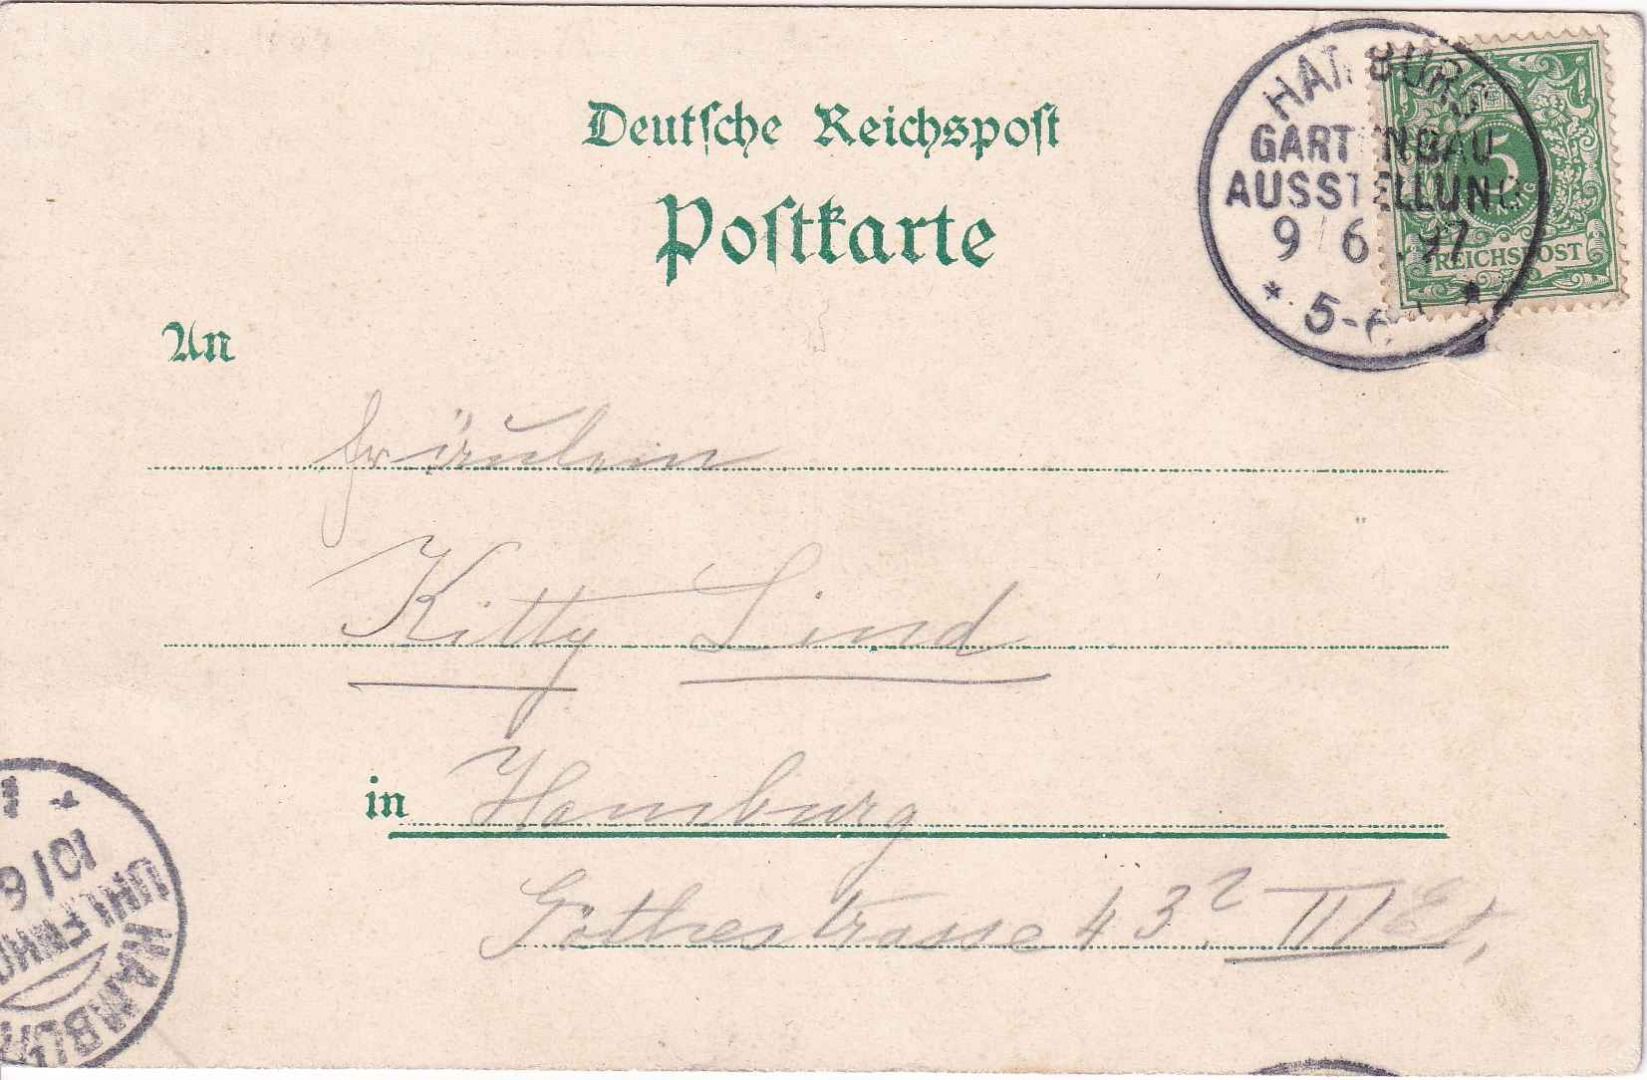 Deutsche Reichspost
Postkarte
HAMBURG
GARTENBAU
AUSSTELLUNG
9/6.97
* 5-6 *
5
REICHSPOST
An
Fräulein
Kitty Lind
in Hamburg
Göthestrasse 43² III Et.
10/6
UHLENHO
HAMBUR